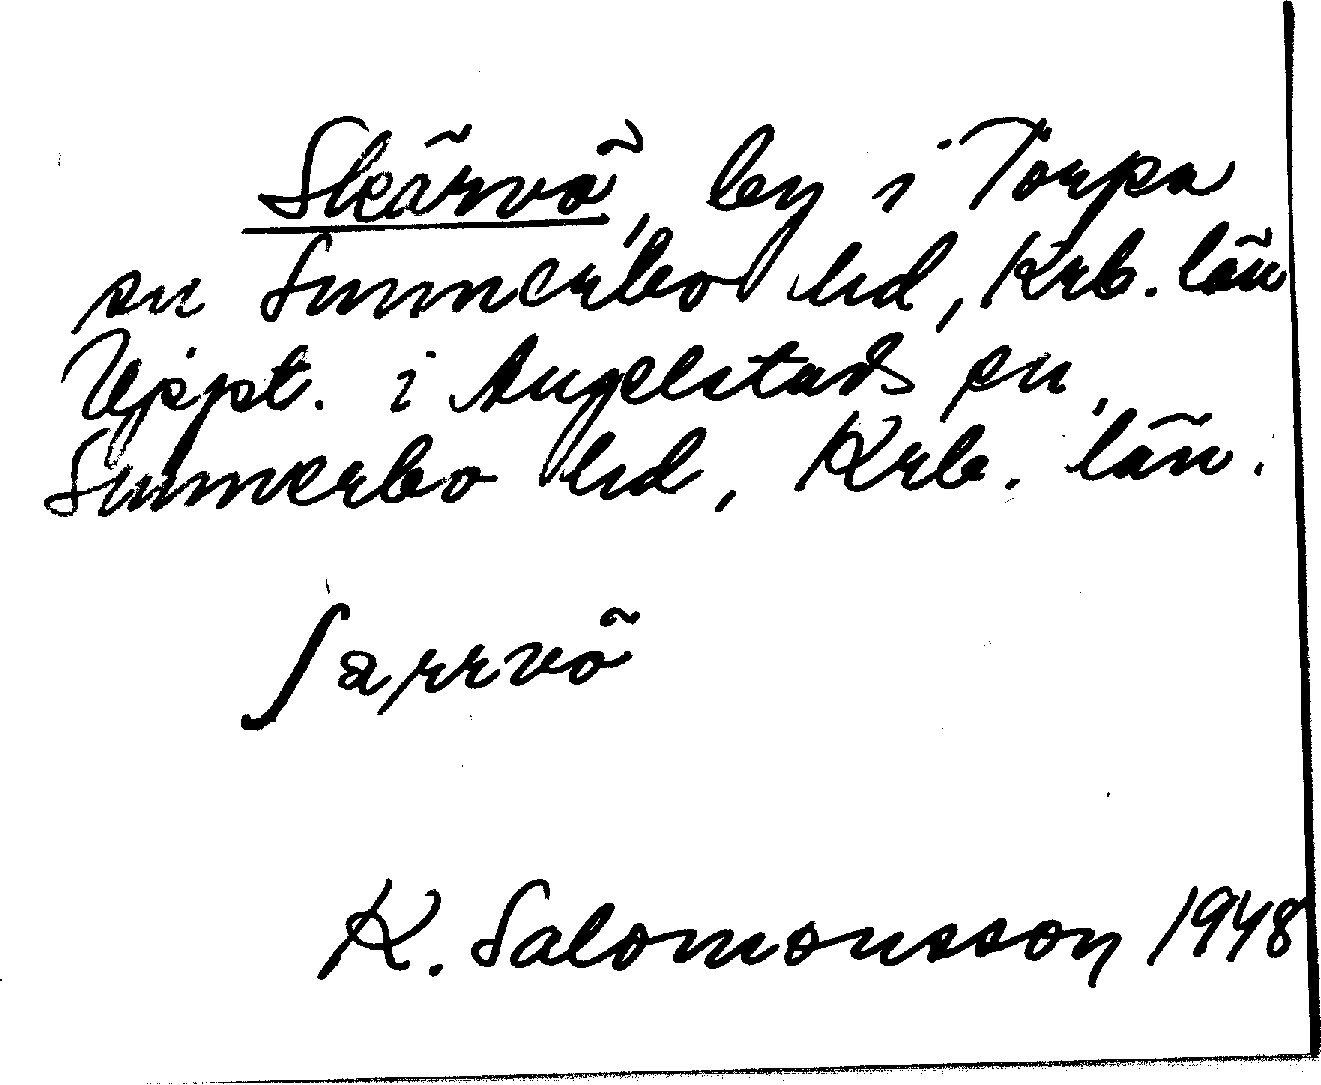 Skärvö, by i Torpa
sn Sunnerbo hd, Krb. län
Uppt. i Angelstads sn,
Sunnerbo hd, Krb. län.
ʃärrvö
K. Salomonsson 1948